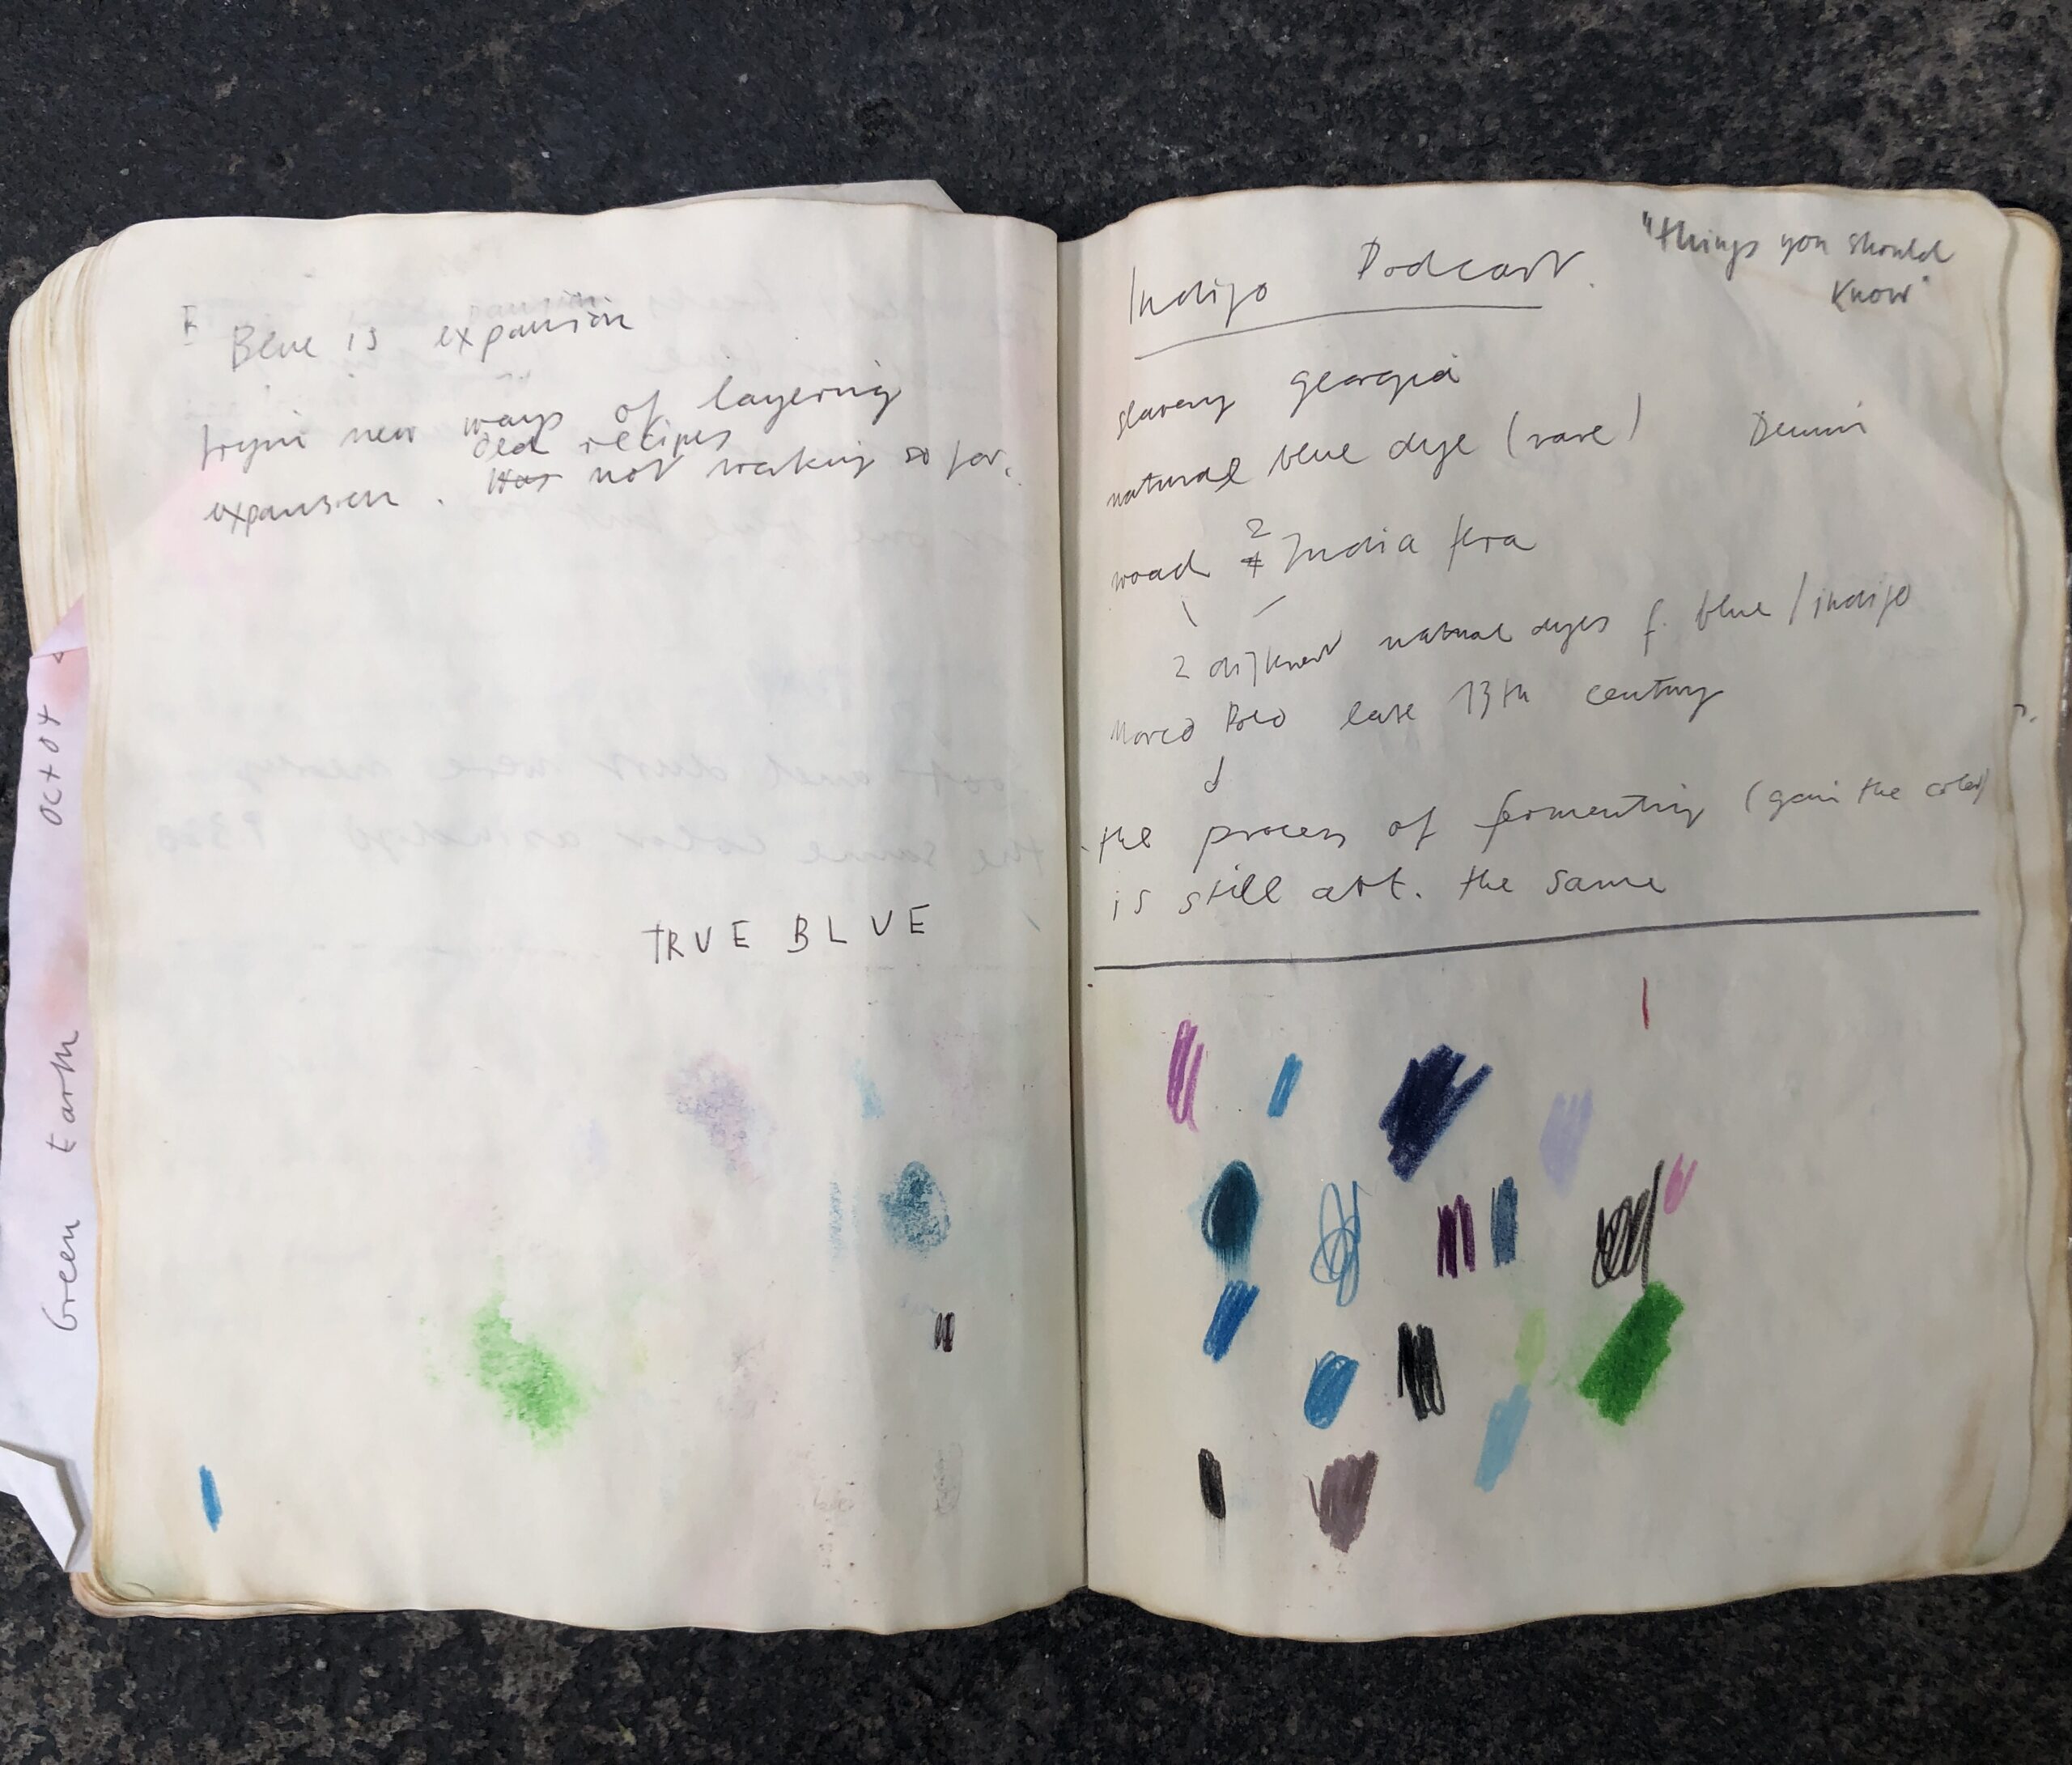 Blue is expansion
tryin new ways of layering
old recipes
expansion. Has not working so far.
TRUE BLUE
Green Earth Oct 04
Indigo Podcast.
"things you should
know"
slavery georgia
natural blue dye (rare) Denim
woad 2 ≠ India fera
2 different natural dyes f. blue / indigo
Marco Polo late 13th century
the process of fermenting (gain the color)
is still abt. the same